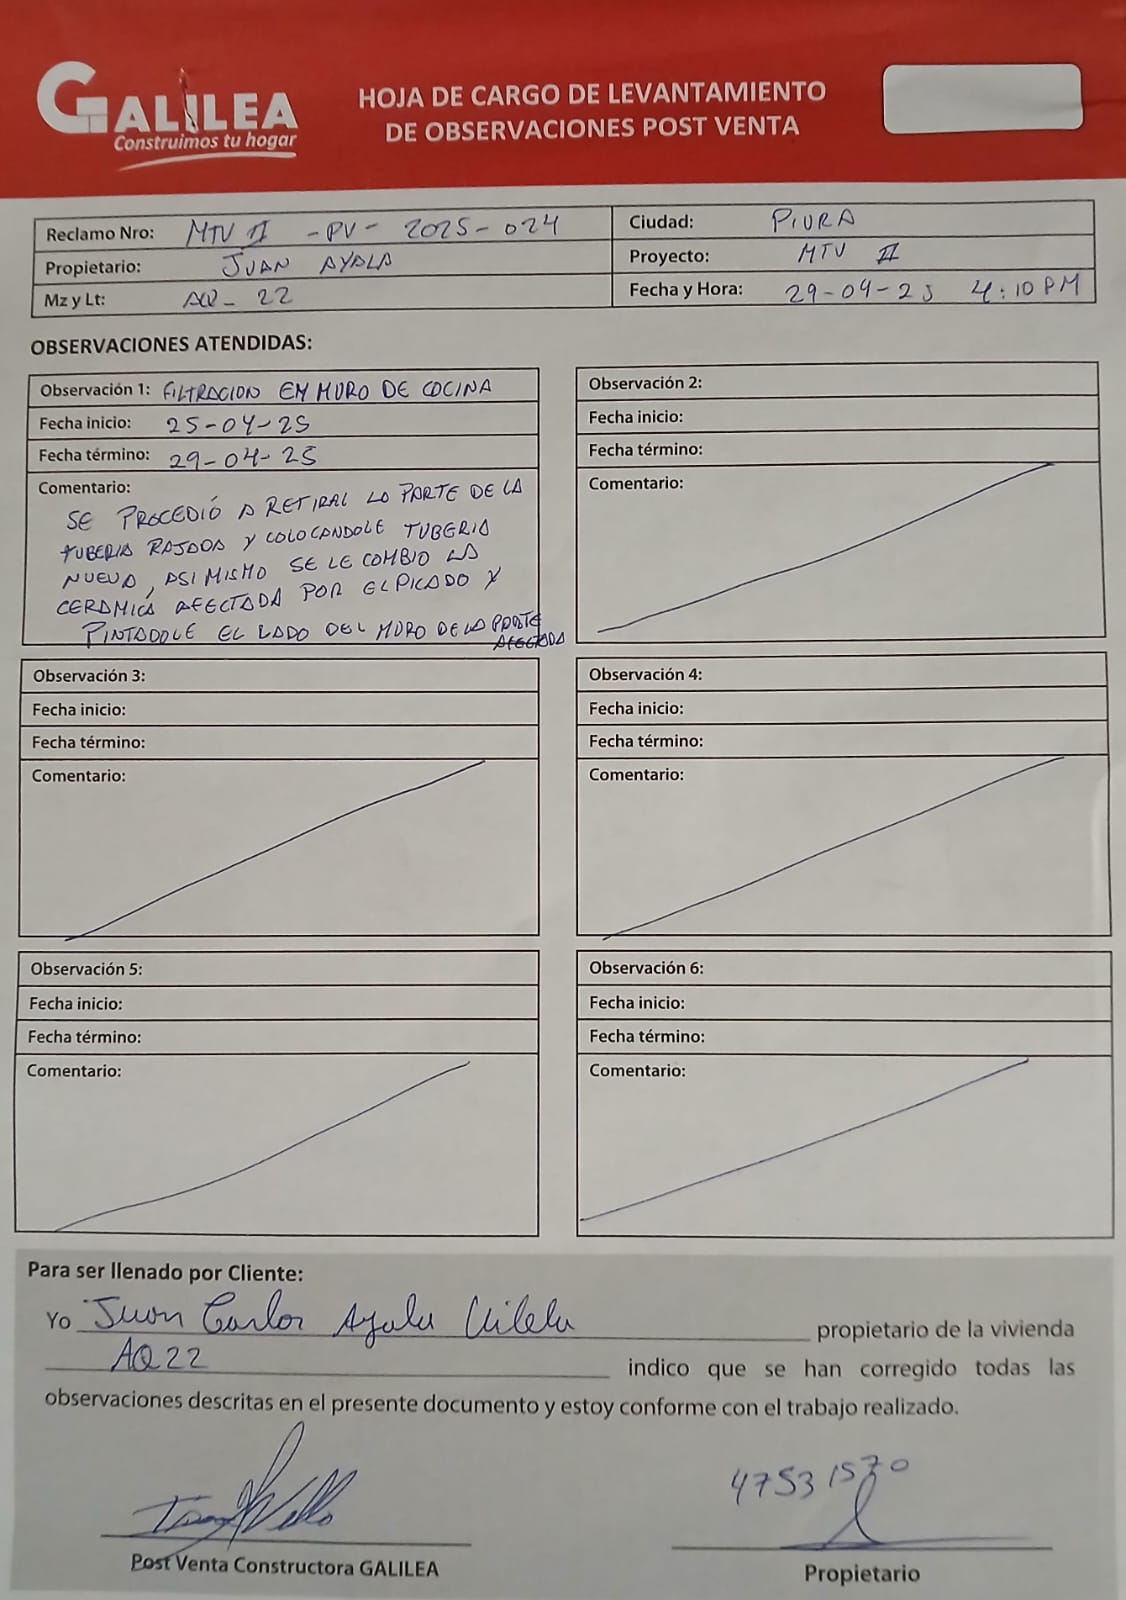 GALILEA
Construimos tu hogar
HOJA DE CARGO DE LEVANTAMIENTO
DE OBSERVACIONES POST VENTA
Reclamo Nro: MTV II - PV - 2025 - 024
Ciudad: PIURA
Propietario: JUAN AYALA
Proyecto: MTV II
Mz y Lt: AQ - 22
Fecha y Hora: 29-04-25 4:10 PM
OBSERVACIONES ATENDIDAS:
Observación 1: FILTRACION EN MURO DE COCINA
Fecha inicio: 25-04-25
Fecha término: 29-04-25
Comentario:
SE PROCEDIÓ A RETIRAL LA PARTE DE LA
TUBERIA RAJADA Y COLOCANDOLE TUBERIA
NUEVA, ASI MISMO SE LE CAMBIO LA
CERAMICA AFECTADA POR EL PICADO Y
PINTADOLE EL LADO DEL MURO DE LA PARTE
AFECTADA
Observación 2:
Fecha inicio:
Fecha término:
Comentario:
Observación 3:
Fecha inicio:
Fecha término:
Comentario:
Observación 4:
Fecha inicio:
Fecha término:
Comentario:
Observación 5:
Fecha inicio:
Fecha término:
Comentario:
Observación 6:
Fecha inicio:
Fecha término:
Comentario:
Para ser llenado por Cliente:
Yo Juan Carlos Ayala Vilela propietario de la vivienda
AQ22 indico que se han corregido todas las
observaciones descritas en el presente documento y estoy conforme con el trabajo realizado.
47531570
Post Venta Constructora GALILEA
Propietario